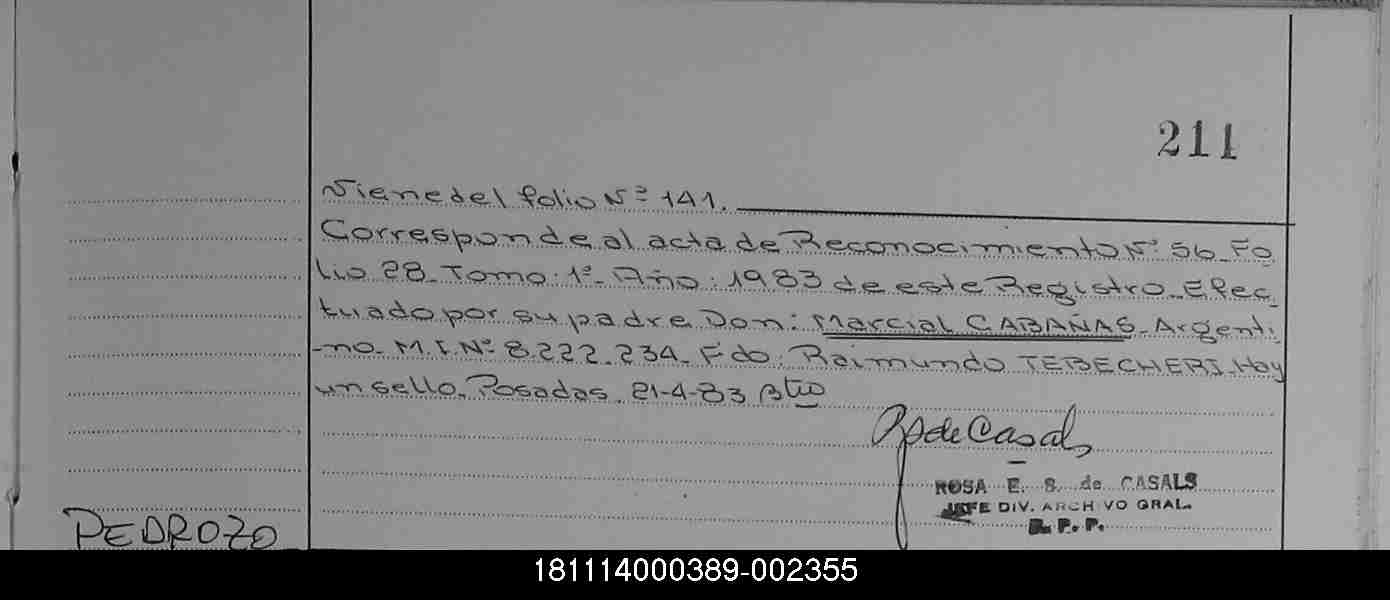 211
Viene del folio Nº 141.
Corresponde al acta de Reconocimiento Nº 56_Fo
lio 28_Tomo: 1º_Año: 1983 de este Registro_Efec
tuado por su padre Don: Marcial CABAÑAS_Argenti
-no_M.I.Nº 8.222.234_Fdo: Raimundo TEBECHERI_Hay
un sello. Posadas. 21-4-83
RS de Casals
ROSA E. S. de CASALS
JEFE DIV. ARCHIVO GRAL.
R. P. P.
PEDROZO
181114000389-002355